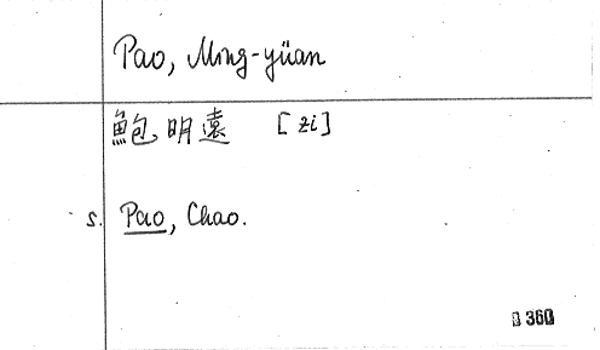 Pao, Ming-yüan
鮑明遠 [zi]
s. Pao, Chao.
360